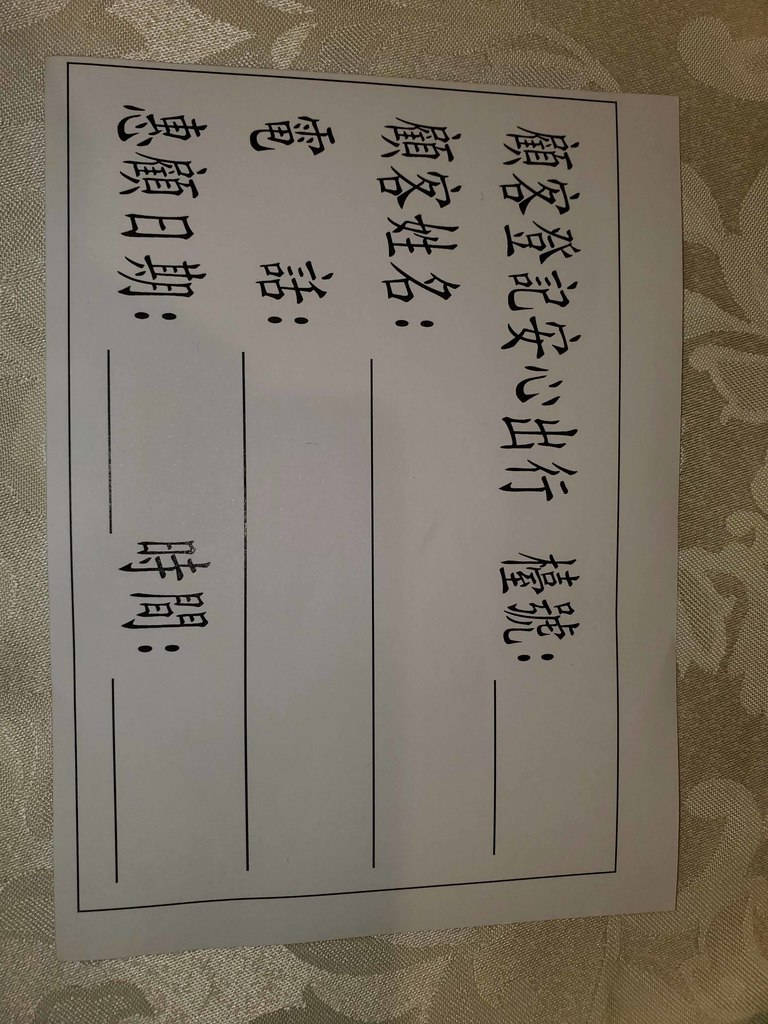 顧客登記安心出行 檯號：
顧客姓名：
電 話：
惠顧日期： 時間：